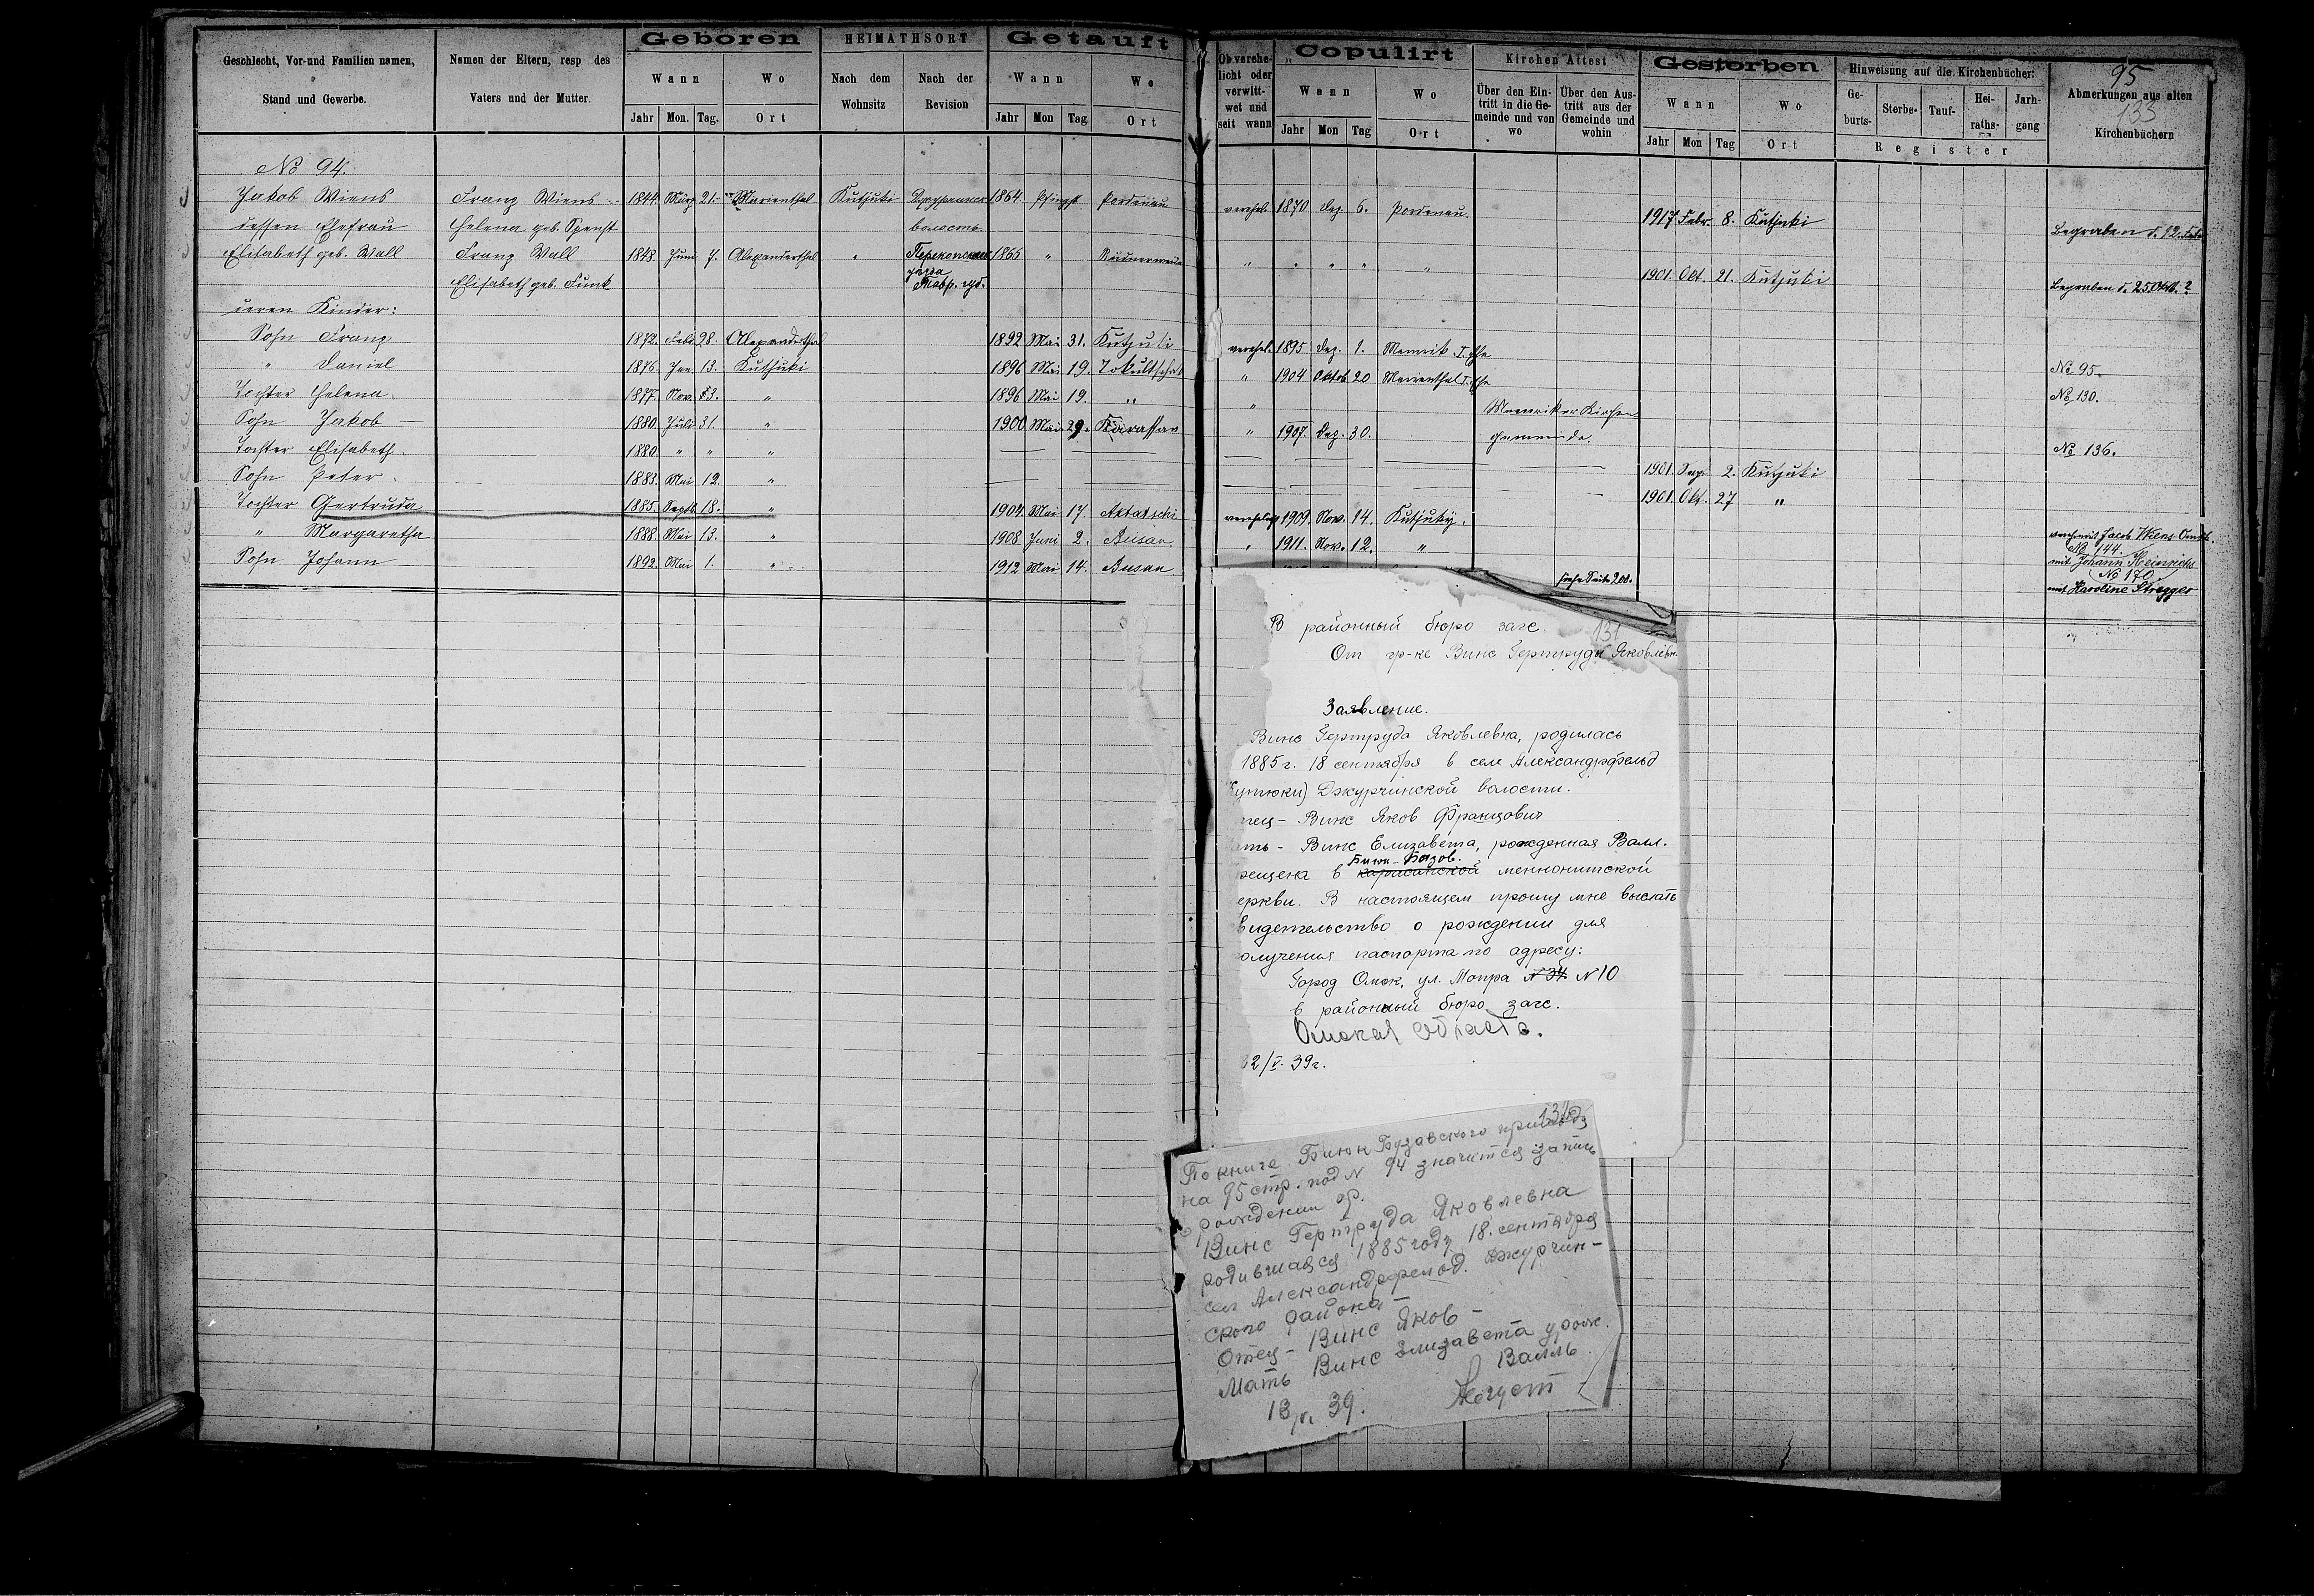 Geschlecht, Vor-und Familien namen,
Stand und Gewerbe.
Namen der Eltern, resp des
Vaters und der Mutter.
Geboren
Wann
Wo
Jahr Mon. Tag.
Ort
HEIMATHSORT
Nach dem
Wohnsitz
Nach der
Revision
Getauft
Wann
Wo
Jahr Mon Tag
Ort
Ob verehe-
licht oder
verwitt-
wet und
seit wann
Copulirt
Wann
Wo
Jahr Mon Tag
Ort
Kirchen Attest
Über den Ein-
tritt in die Ge-
meinde und von
wo
Über den Aus-
tritt aus der
Gemeinde und
wohin
Gestorben
Wann
Wo
Jahr Mon Tag
Ort
Hinweisung auf die Kirchenbücher:
Ge-
burts-
Sterbe-
Tauf-
Hei-
raths-
Jarh-
gang
Register
95
Abmerkungen aus alten
133
Kirchenbüchern
No 94.
Jakob Wiens Franz Wiens 1844. März 21. Marienthal Kutjuki 1864. Pfingst. Pordenau verehel. 1870 Dez. 6. Pordenau. 1917. Febr. 8. Kutjuki
dessen Ehefrau Helena geb. Spenst волость. Begraben d. 12. Feb.
Elisabeth geb. Wall Franz Wall 1848. Juni 7. Alexanderthal " 1866 " " " " " " 1901. Okt. 21. Kutjuki
Elisabeth geb. Funk Тавр. губ. Begraben d. 25 Okt. ?
deren Kinder:
Sohn Franz 1872. Feb. 28. Alexanderthal 1892 Mai 31. Kutjuki verehel. 1895 Dez. 1. Memrik I. Ehe No 95.
" Daniel 1876. Jan. 13. Kutjuki 1896 Mai 19. " 1904 Oktob. 20 Marienthal I. Ehe No 130.
Tochter Helena 1877. Nov. 23. " 1896 Mai 19. " " Memriker Kirchen-
Sohn Jakob 1880. Juli 31. " 1900. Mai 29. Karassan " 1907. Dez. 30. gemeinde. No 136.
Tochter Elisabeth 1880. " " " 1901. 2. Kutjuki
Sohn Peter 1883. Mai 12. " 1901. Okt. 27 "
Tochter Gertruda 1885. Septb. 18. " 1904. Mai 17. verehelig 1909. Nov. 14. Kutjuky. verehl. mit Jacob Wiens
No 144.
" Margaretha 1888. Mai 13. " 1908 Juni 2. Busau. " 1911. Nov. 12. " mit Johann Heinrichs
No 170
Sohn Johann 1892. Mai 1. " 1912 Mai 14. Busau siehe Seite 200. mit Karoline Stregger
131
В районный бюро загс.
От гр-ке Винс Гертруды Яковлевн
Заявление.
Винс Гертруда Яковлевна, родилась
1885 г. 18 сентября в селе Александрфельд
Кутюки) Джурчинской волости.
тец - Винс Яков Францович
ать - Винс Елизавета, рожденная Валл.
Биюк-Бузов.
рещена в карасанской меннонитской
еркви. В настоящем прошу мне выслать
видетельство о рождении для
олучения паспорта по адресу:
Город Омск, ул. Мопра N 34 N 10
в районный бюро загс.
Омская область.
2/V. 39 г.
132
По книге Биюк Бузавского прихода
на 95 стр. под N 94 значится запись
о рождении гр.
Винс Гертруда Яковлевна
родившаяся 1885 году 18. сентября
сел Александрфельд. Джурчин-
ского района -
Отец - Винс Яков -
Мать Винс Элизавета урож.
Валль
13/V. 39.